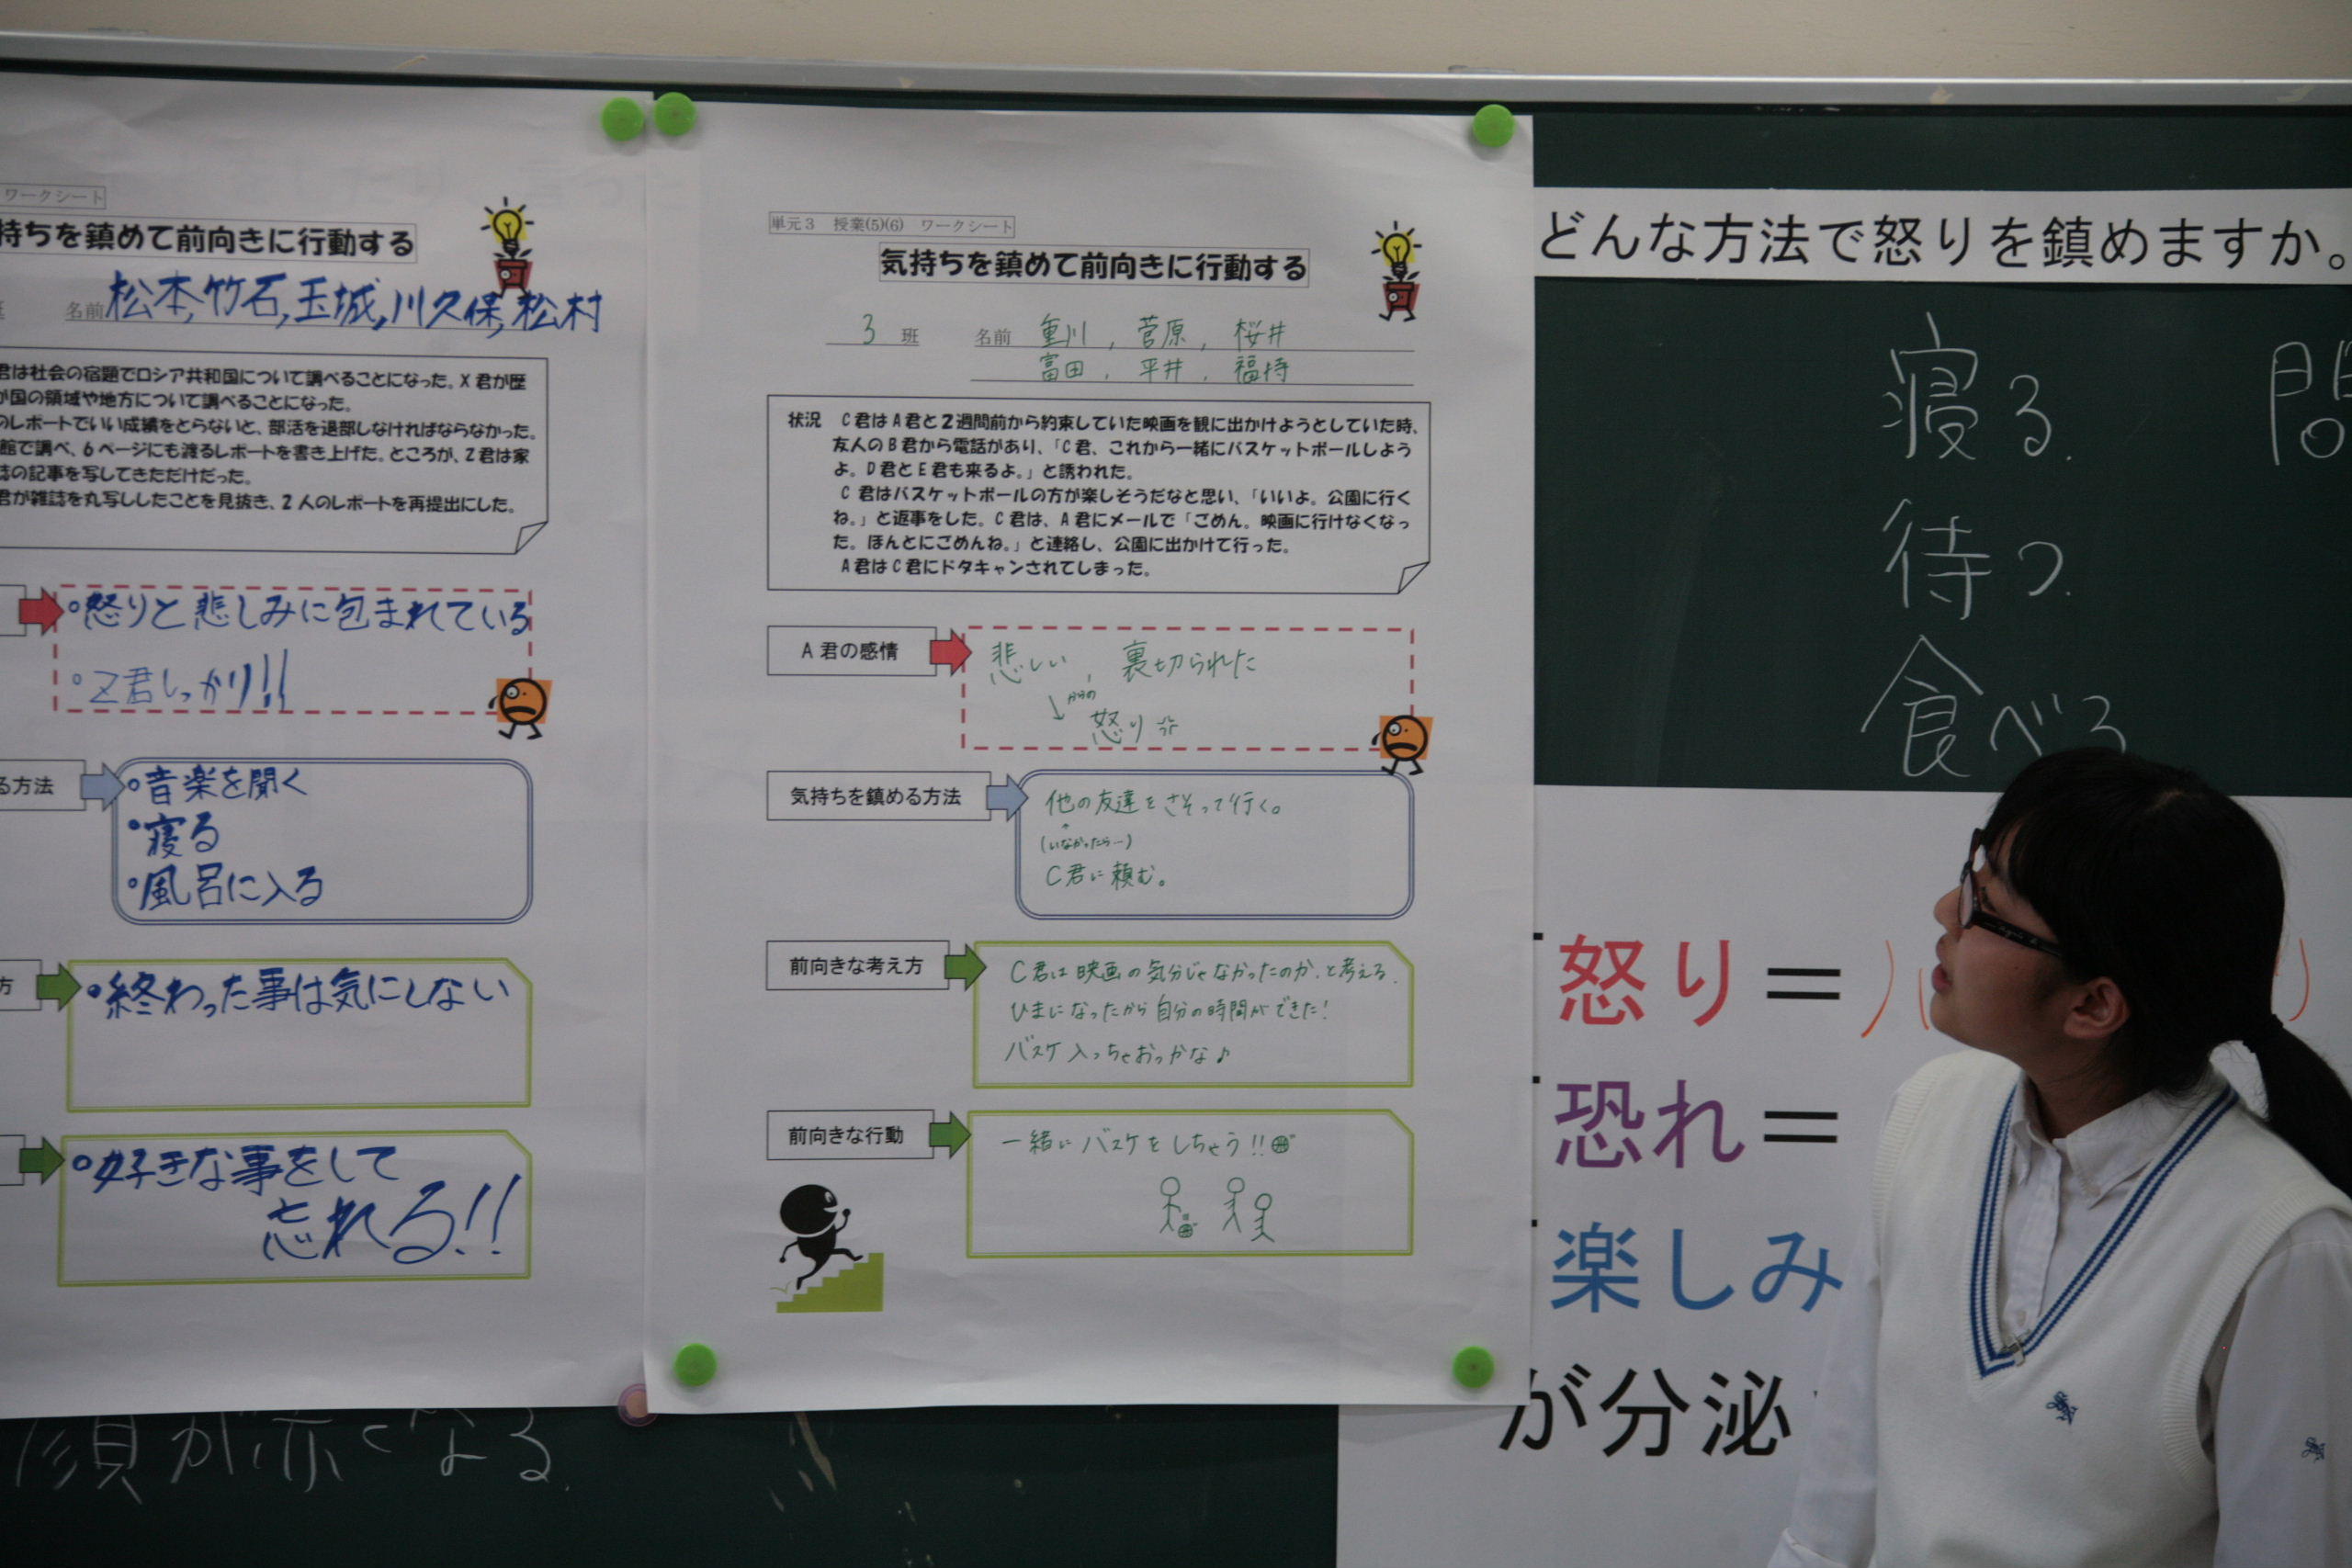 ワークシート
持ちを鎮めて前向きに行動する
名前 松本,竹石,玉城,川久保,松村
君は社会の宿題でロシア共和国について調べることになった。X君が歴
が国の領域や地方について調べることになった。
のレポートでいい成績をとらないと、部活を退部しなければならなかった。
館で調べ、6ページにも渡るレポートを書き上げた。ところが、Z君は家
誌の記事を写してきただけだった。
君が雑誌を丸写ししたことを見抜き、2人のレポートを再提出にした。
・怒りと悲しみに包まれている
・Z君しっかり!!
る方法
・音楽を聞く
・寝る
・風呂に入る
方
・終わった事は気にしない
・好きな事をして
忘れる!!
単元3 授業(5)(6) ワークシート
気持ちを鎮めて前向きに行動する
3 班 名前 重川, 菅原, 桜井
富田, 平井, 福持
状況 C君はA君と2週間前から約束していた映画を観に出かけようとしていた時、
友人のB君から電話があり、「C君、これから一緒にバスケットボールしよう
よ。D君とE君も来るよ。」と誘われた。
C君はバスケットボールの方が楽しそうだなと思い、「いいよ。公園に行く
ね。」と返事をした。C君は、A君にメールで「ごめん。映画に行けなくなっ
た。ほんとにごめんね。」と連絡し、公園に出かけて行った。
A君はC君にドタキャンされてしまった。
A君の感情
悲しい, 裏切られた
↓からの
怒り
気持ちを鎮める方法
他の友達をさそって行く。
(いなかったら…)
C君に頼む。
前向きな考え方
C君は映画の気分じゃなかったのか、と考える.
ひまになったから自分の時間ができた!
バスケ入っちゃおっかな♪
前向きな行動
一緒にバスケをしちゃう!!
どんな方法で怒りを鎮めますか。
寝る.
待つ.
食べる
「怒り=
「恐れ=
「楽しみ
が分泌
顔が赤くなる.